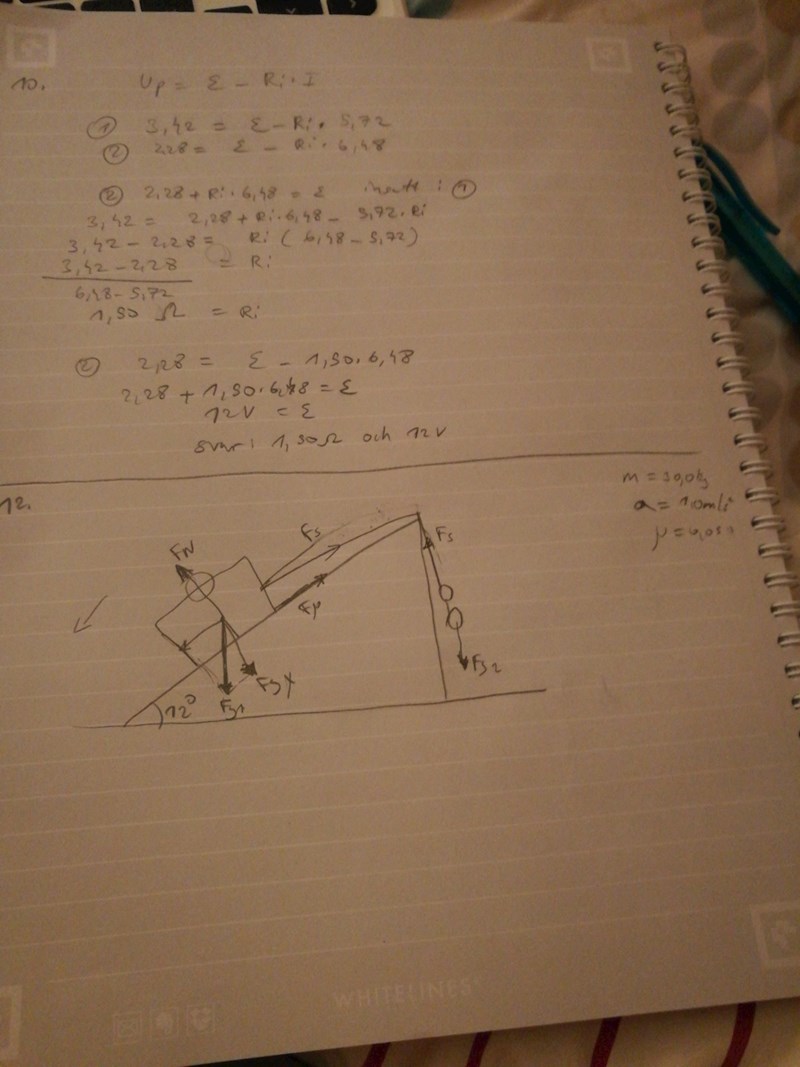 10. Up = Ɛ - Ri · I
① 3,42 = Ɛ - Ri · 5,72
② 2,28 = Ɛ - Ri · 6,48
② 2,28 + Ri · 6,48 = Ɛ insatt i ①
3,42 = 2,28 + Ri · 6,48 - 5,72 · Ri
3,42 - 2,28 = Ri ( 6,48 - 5,72)
3,42 - 2,28 = Ri
6,48 - 5,72
1,50 Ω = Ri
② 2,28 = Ɛ - 1,50 · 6,48
2,28 + 1,50 · 6,48 = Ɛ
12V = Ɛ
svar: 1,50Ω och 12V
m = 50,0kg
12.
a = 1,0m/s²
Fs
Fs
FN
Fμ
Fg2
Fgx
12°
Fg1
WHITELINES